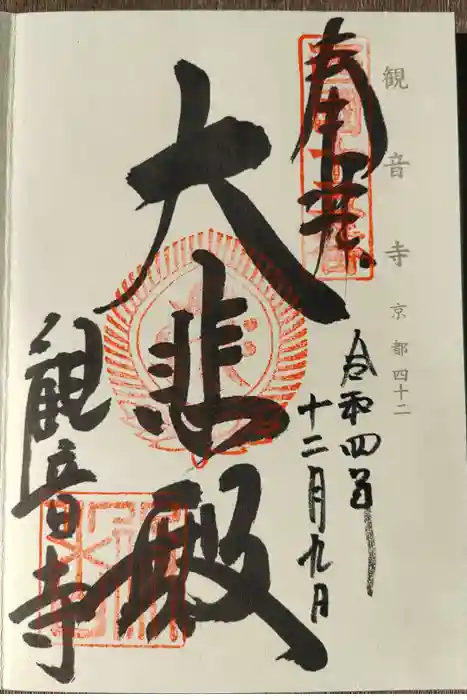 観音寺 京都四十二
奉拝
令和四年
十二月九日
大悲殿
観音寺